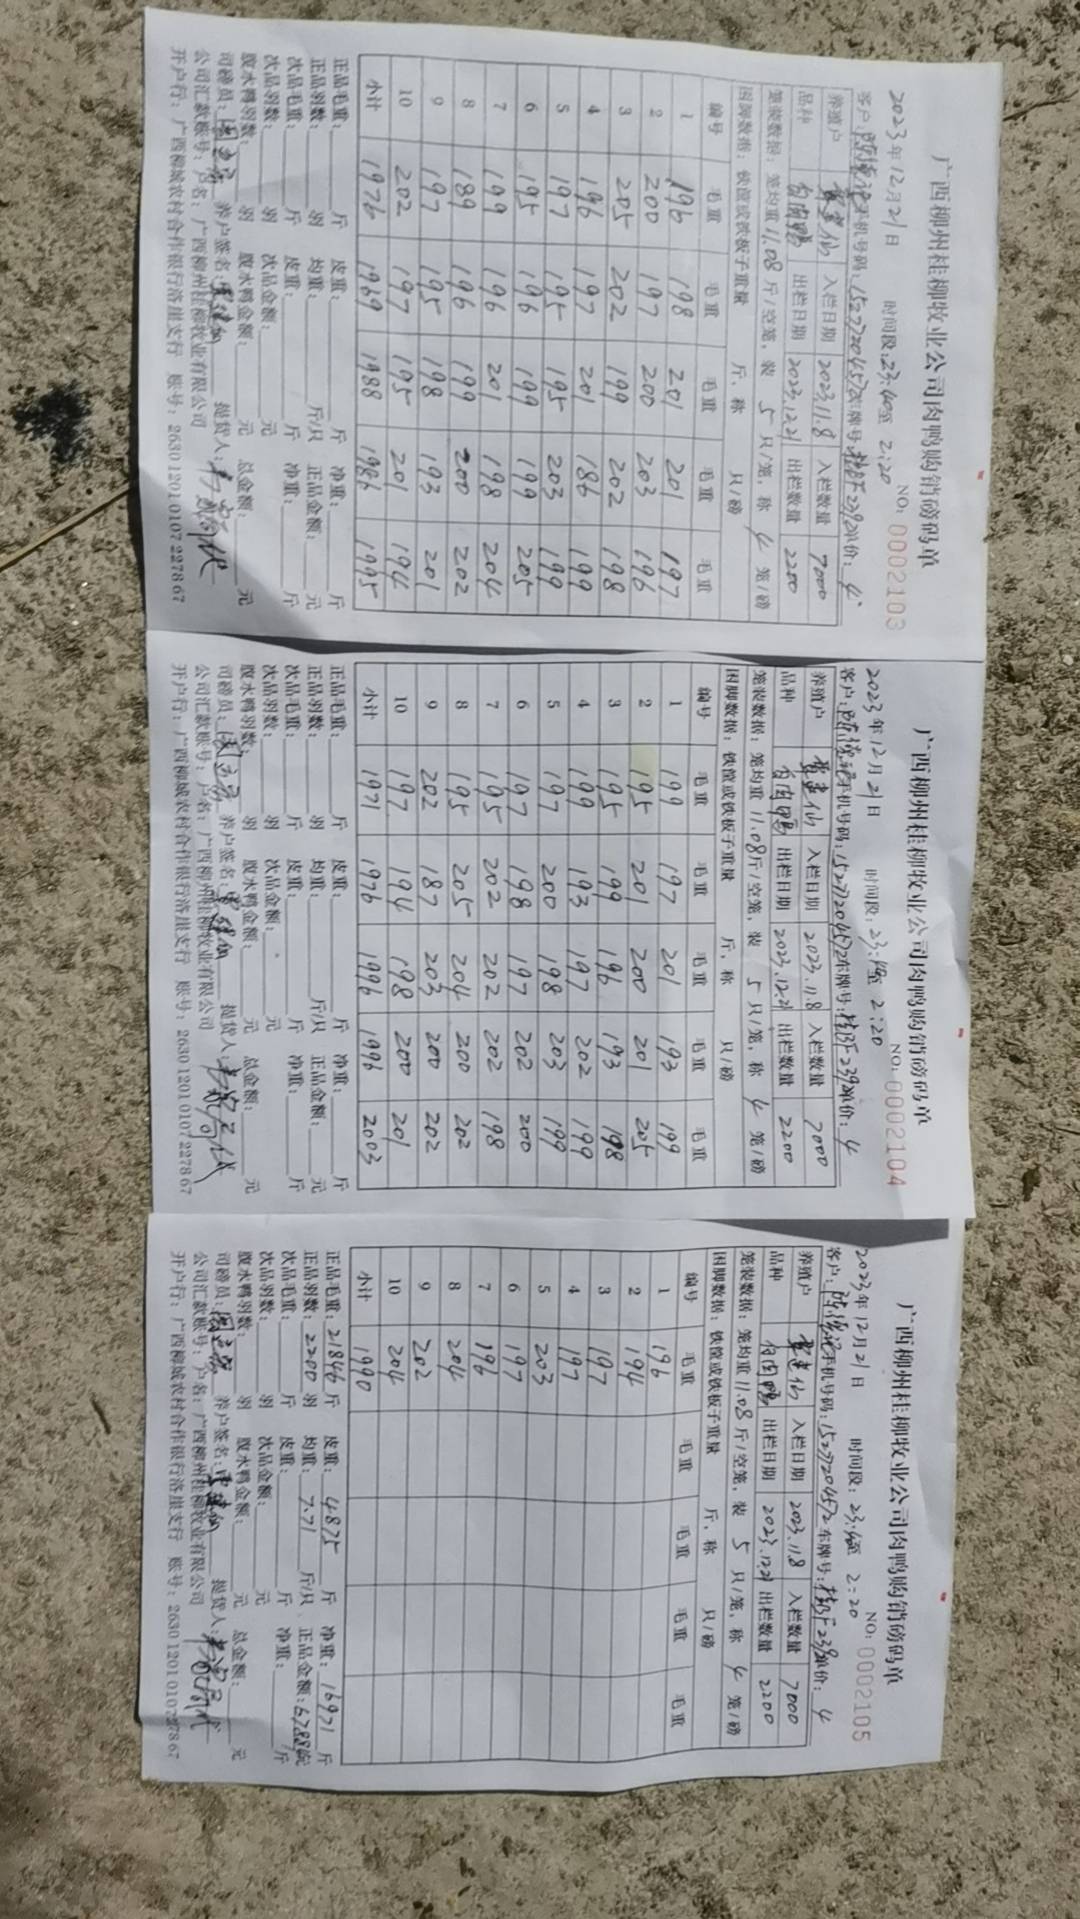 广西柳州桂柳牧业公司肉鸭购销磅码单
2023年12月21日 时间段:23:40至 2:20 NO: 0002103
客户: 手机号码:15277204572 车牌号: 单价: 4
养殖户 入栏日期 2023.11.8 入栏数量 7000
品种 白肉鸭 出栏日期 2023.12.21 出栏数量 2200
笼装数据: 笼均重 11.08 斤/空笼,装 5 只/笼,称 4 笼/磅
困脚数据:铁筐或铁板子重量 斤,称 只/磅
编号 毛重 毛重 毛重 毛重 毛重
1 196 198 201 201 197
2 200 197 200 203 196
3 205 202 199 202 198
4 196 197 201 186 199
5 197 195 195 203 199
6 195 196 199 199 205
7 199 196 201 198 204
8 189 196 199 200 202
9 197 195 198 193 201
10 202 197 195 201 194
小计 1976 1969 1988 1986 1995
正品毛重: 斤 皮重: 斤 净重: 斤
正品羽数: 羽 均重: 斤/只 正品金额: 元
次品毛重: 斤 皮重: 斤 净重: 斤
次品羽数: 羽 次品金额: 元
腹水鸭羽数: 羽 腹水鸭金额: 元 总金额: 元
司磅员: 养户签名: 提货人:
公司汇款账号:户名:广西柳州桂柳牧业有限公司
开户行:广西柳城农村合作银行洛崖支行 账号:2630 1201 0107 2278 67
广西柳州桂柳牧业公司肉鸭购销磅码单
2023年12月21日 时间段:23:40至 2:20 NO: 0002104
客户: 手机号码:15277204572 车牌号: 单价: 4
养殖户 入栏日期 2023.11.8 入栏数量 7000
品种 白肉鸭 出栏日期 2023.12.21 出栏数量 2200
笼装数据: 笼均重 11.08 斤/空笼,装 5 只/笼,称 4 笼/磅
困脚数据:铁筐或铁板子重量 斤,称 只/磅
编号 毛重 毛重 毛重 毛重 毛重
1 199 197 201 193 199
2 195 201 200 201 205
3 195 199 196 193 198
4 199 193 197 202 199
5 197 200 198 203 199
6 197 198 197 202 200
7 195 202 202 202 198
8 195 205 204 200 202
9 202 187 203 200 202
10 197 194 198 200 201
小计 1971 1976 1996 1996 2003
正品毛重: 斤 皮重: 斤 净重: 斤
正品羽数: 羽 均重: 斤/只 正品金额: 元
次品毛重: 斤 皮重: 斤 净重: 斤
次品羽数: 羽 次品金额: 元
腹水鸭羽数: 羽 腹水鸭金额: 元 总金额: 元
司磅员: 养户签名: 提货人:
公司汇款账号:户名:广西柳州桂柳牧业有限公司
开户行:广西柳城农村合作银行洛崖支行 账号:2630 1201 0107 2278 67
广西柳州桂柳牧业公司肉鸭购销磅码单
2023年12月21日 时间段:23:40至 2:20 NO: 0002105
客户: 手机号码:15277204572 车牌号: 单价: 4
养殖户 入栏日期 2023.11.8 入栏数量 7000
品种 白肉鸭 出栏日期 2023.12.21 出栏数量 2200
笼装数据: 笼均重 11.08 斤/空笼,装 5 只/笼,称 4 笼/磅
困脚数据:铁筐或铁板子重量 斤,称 只/磅
编号 毛重 毛重 毛重 毛重 毛重
1 196
2 194
3 197
4 197
5 203
6 197
7 196
8 204
9 202
10 204
小计 1990
正品毛重: 21846 斤 皮重: 4875 斤 净重: 16971 斤
正品羽数: 2200 羽 均重: 7.71 斤/只 正品金额: 67884元
次品毛重: 斤 皮重: 斤 净重: 斤
次品羽数: 羽 次品金额: 元
腹水鸭羽数: 羽 腹水鸭金额: 元 总金额: 元
司磅员: 养户签名: 提货人:
公司汇款账号:户名:广西柳州桂柳牧业有限公司
开户行:广西柳城农村合作银行洛崖支行 账号:2630 1201 0107 2278 67